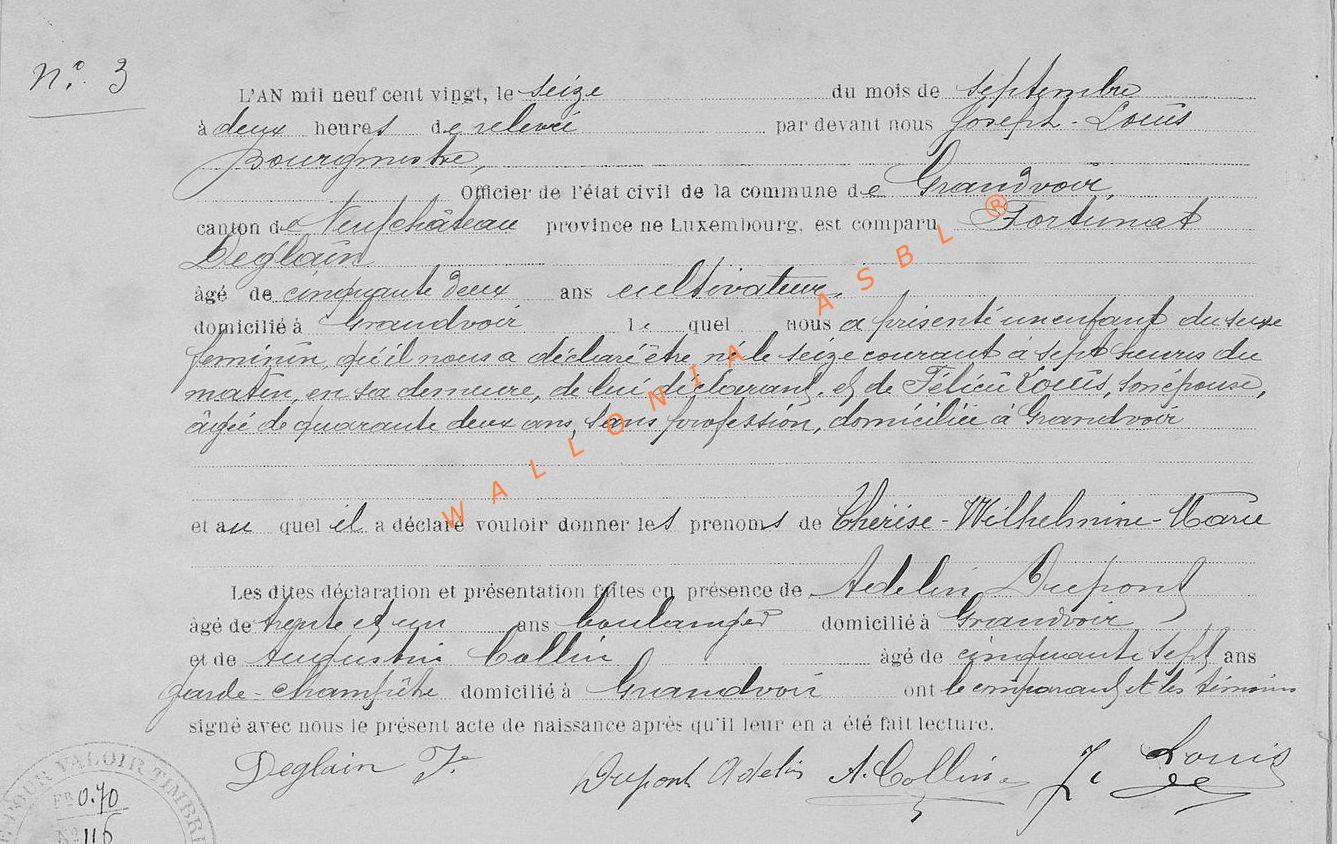 N.° 3
L'AN mil neuf cent vingt, le seize du mois de septembre
à deux heures de relevée par devant nous Joseph - Louis
Bourgmestre,
Officier de l'état civil de la commune de Grandvoir
canton de Neufchâteau province ne Luxembourg, est comparu Fortunat
Deglain
âgé de cinquante deux ans cultivateur
domicilié à Grandvoir le quel nous a présenté un enfant du sexe
féminin, qu'il nous a déclaré être né le seize courant à sept heures du
matin, en sa demeure, de lui déclarant, et de Félicie Louis, son épouse,
âgée de quarante deux ans, sans profession, domiciliée à Grandvoir
et au quel il a déclaré vouloir donner les prenoms de Thérèse - Wilhelmine - Marie
Les dites déclaration et présentation faites en présence de Adelin Dupont
âgé de trente et un ans boulanger domicilié à Grandvoir
et de Augustin Collin âgé de cinquante sept ans
garde - champêtre domicilié à Grandvoir ont le comparant et les témoins
signé avec nous le présent acte de naissance après qu'il leur en a été fait lecture.
Deglain F. Dupont Adelin A. Collin J. Louis
POUR VALOIR TIMBRE
FR 0.70
N° 116
WALLONIA ASBL ®